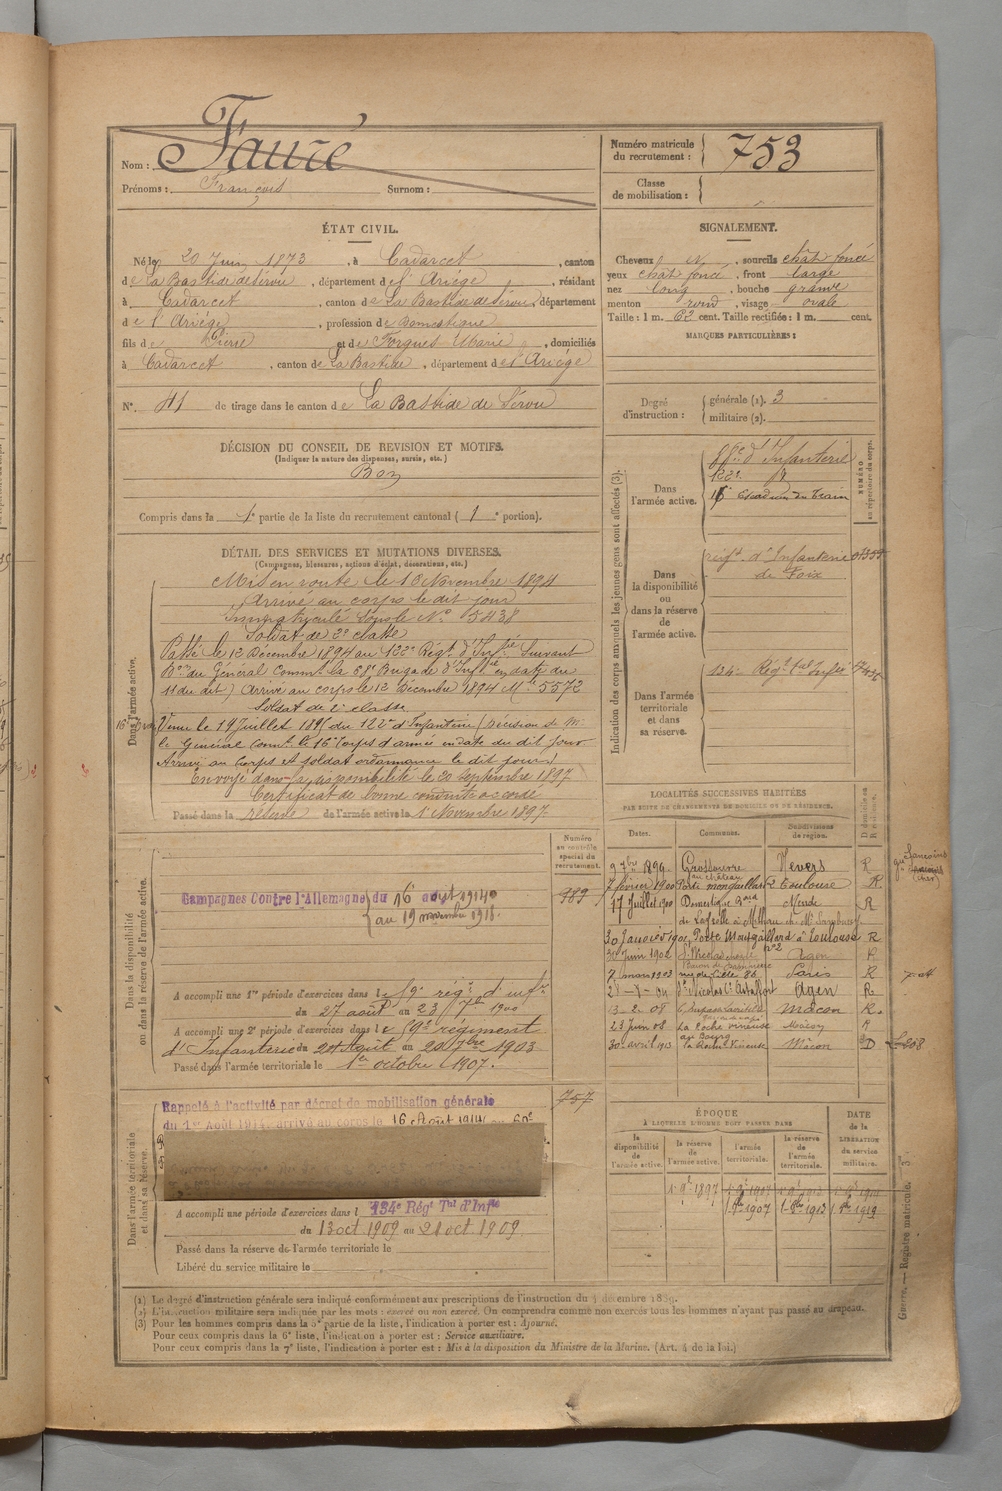 Nom : Fauré
Prénoms : François Surnom :
Numéro matricule du recrutement : 753
Classe de mobilisation :
ÉTAT CIVIL.
Né le 20 Juin 1873, à Cadarcet, canton
de La Bastide de Sérou, département de l'Ariège, résidant
à Cadarcet, canton de La Bastide de Sérou, département
de l'Ariège, profession de Domestique
fils de Pierre et de Forgues Marie, domiciliés
à Cadarcet, canton de La Bastide, département de l'Ariège
N° 41 de tirage dans le canton de La Bastide de Sérou
SIGNALEMENT.
Cheveux N, sourcils chât foncé
yeux chât foncé, front large
nez long, bouche grande
menton rond, visage ovale
Taille : 1 m. 62 cent. Taille rectifiée : 1 m. cent.
MARQUES PARTICULIÈRES :
Degré d'instruction : générale (1). 3
militaire (2).
DÉCISION DU CONSEIL DE REVISION ET MOTIFS.
(Indiquer la nature des dispenses, sursis, etc.)
Bon
Compris dans la 1e partie de la liste du recrutement cantonal (1e portion).
DÉTAIL DES SERVICES ET MUTATIONS DIVERSES.
(Campagnes, blessures, actions d'éclat, décorations, etc.)
Dans l'armée active.
Mis en route le 10 Novembre 1894
Arrivé au corps le dit jour
Immatriculé sous le N° 5438
Soldat de 2e classe
Passé le 12 Décembre 1894 au 122e Régt d'Infie Suivant
du Général Commt la Brigade d'Infie en date du
11 du dit) Arrivé au corps le 12 Décembre 1894 Mle 5572
Soldat de 2e classe
Venu le 14 Juillet 1895 du 122e d'Infanterie (décision de M.
le Général Commt le 16e Corps d'armée en date du dit jour
Arrivé au corps et soldat ordonnance le dit jour)
Envoyé dans la disponibilité le 20 Septembre 1897
Certificat de bonne conduite accordé
Passé dans la réserve de l'armée active le 1e Novembre 1897
Indication des corps auxquels les jeunes gens sont affectés (3).
NUMÉRO au répertoire du corps.
Dans l'armée active.
d'Infanterie
122e
16e Escadron du Train
Dans la disponibilité ou dans la réserve de l'armée active.
régt d'Infanterie
de Foix
Dans l'armée territoriale et dans sa réserve.
134e Régt tal Infie
LOCALITÉS SUCCESSIVES HABITÉES
PAR SUITE DE CHANGEMENTS DE DOMICILE OU DE RÉSIDENCE.
Dates. Communes. Subdivisions de région. D domicile ou R résidence.
9 7bre 1899 Grossouvre au château Nevers R
7 février 1900 Porte Montgaillard 2 Toulouse R
17 Juillet 1900 Domestique Mende R
30 Janvier 1902 Porte Montgaillard n°2 à Toulouse R
Juin 1902 Agen R
7 mars 1903 Paris R
04 St Nicolas Agen R
08 Mâcon R
23 Juin 08 La Roche Vineuse Mâcon R
30 avril 1913 au Bourg la Roche Vineuse Mâcon D
Numéro au contrôle spécial du recrutement.
989
Dans la disponibilité ou dans la réserve de l'armée active.
Campagnes Contre l'Allemagne du 16 août 1914
au 19 novembre 1918.
A accompli une 1re période d'exercices dans le 59e régt d'infie
du 27 août au 23 7bre 1900
A accompli une 2e période d'exercices dans le 59e régiment
d'Infanterie du 24 Août au 20 7bre 1903
Passé dans l'armée territoriale le 1er octobre 1907.
757
Dans l'armée territoriale et dans sa réserve.
Rappelé à l'activité par décret de mobilisation générale
du 1er Août 1914. arrivé au corps le 16 Août 1914 au 60e
A accompli une période d'exercices dans l 134e Régt Tal d'Infie
du 13 oct 1909 au 21 oct 1909.
Passé dans la réserve de l'armée territoriale le
Libéré du service militaire le
ÉPOQUE
À LAQUELLE L'HOMME DOIT PASSER DANS
la disponibilité de l'armée active. la réserve de l'armée active. l'armée territoriale. la réserve de l'armée territoriale.
DATE de la LIBÉRATION du service militaire.
Guerre. — Registre matricule.
(1) Le degré d'instruction générale sera indiqué conformément aux prescriptions de l'instruction du 4 décembre 1889.
(2) L'instruction militaire sera indiquée par les mots : exercé ou non exercé. On comprendra comme non exercés tous les hommes n'ayant pas passé au drapeau.
(3) Pour les hommes compris dans la 5e partie de la liste, l'indication à porter est : Ajourné.
Pour ceux compris dans la 6e liste, l'indication à porter est : Service auxiliaire.
Pour ceux compris dans la 7e liste, l'indication à porter est : Mis à la disposition du Ministre de la Marine. (Art. 4 de la loi.)